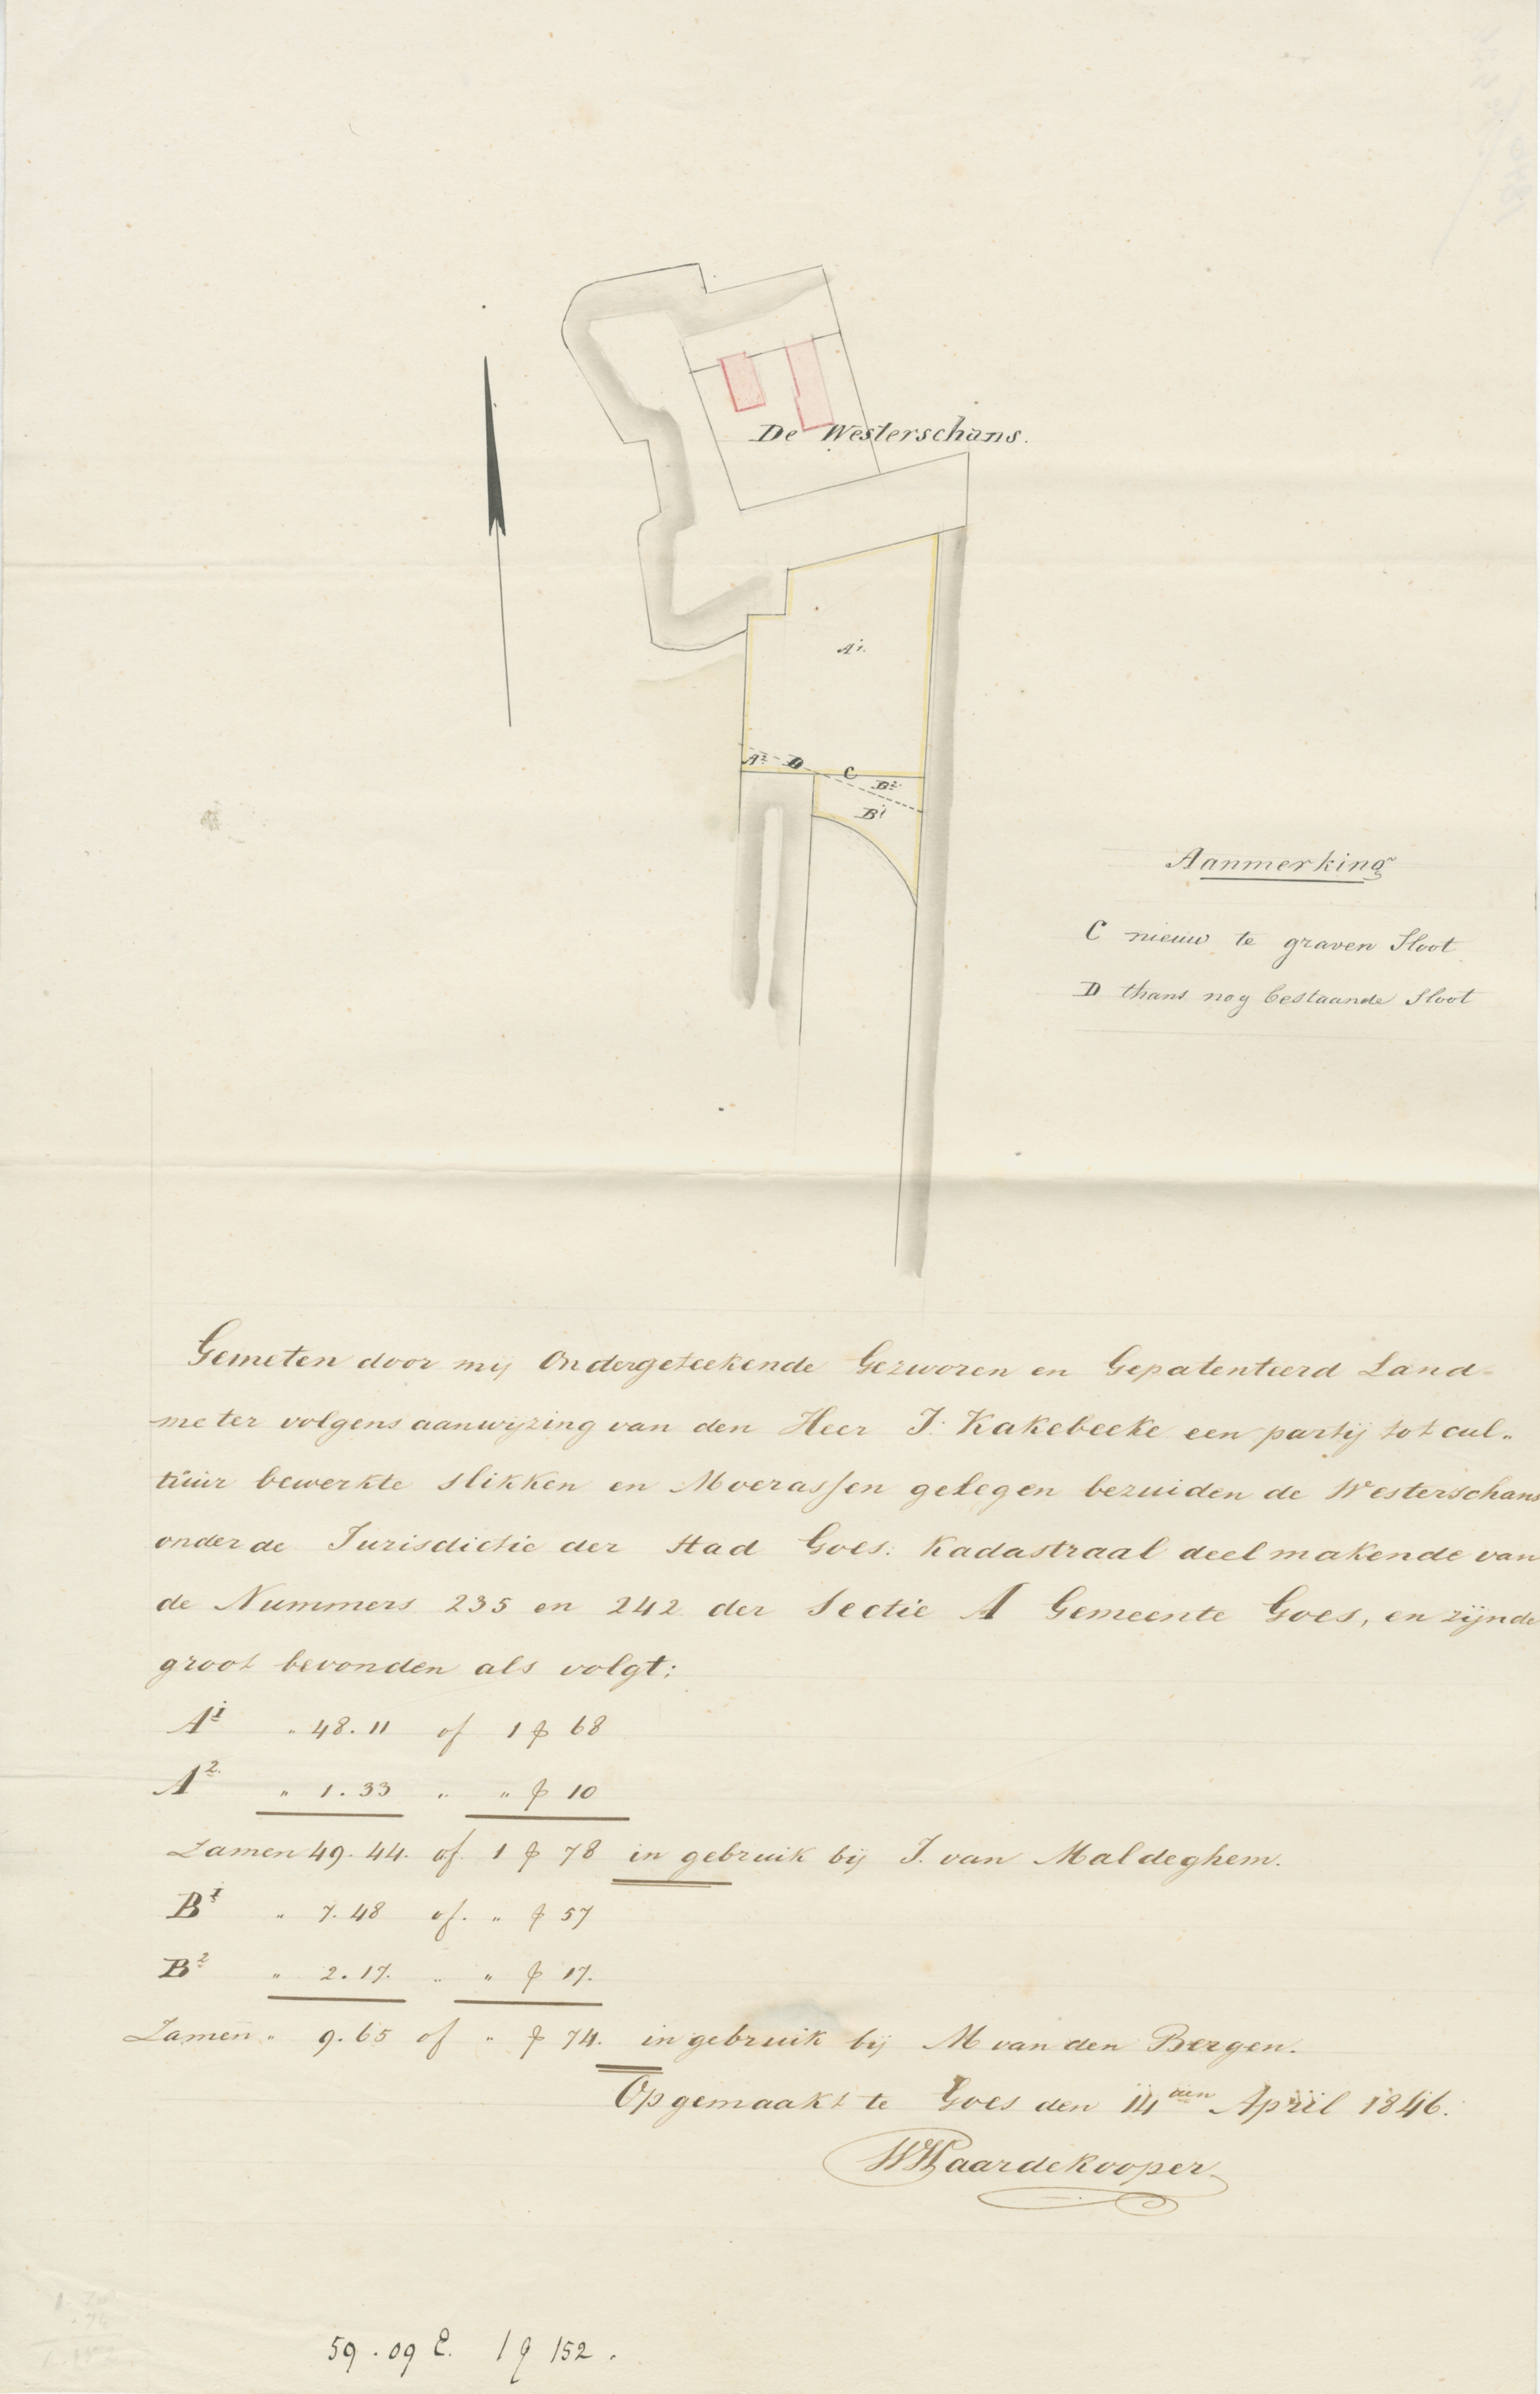 De Westerschans.
A1.
A2. D C B2.
B1
Aanmerking
C nieuw te graven Sloot
D thans nog bestaande Sloot
Gemeten door mij Ondergeteekende Gezworen en Gepatenteerd Land-
meter volgens aanwijzing van den Heer J. Kakebeeke een partij tot cul„
tuur bewerkte slikken en Moerassen gelegen bezuiden de Westerschans
onder de Jurisdictie der Stad Goes: Kadastraal deelmakende van
de Nummers 235 en 242 der Sectie A Gemeente Goes, en zijnde
groot bevonden als volgt:
A1 „ 48.11 of 1 G 68
A2. „ 1.33 „ „ G 10
Zamen 49.44. of 1 G 78 in gebruik bij J. van Maldeghem.
B1 „ 7.48 of. „ G 57
B2 „ 2.17. „ „ G 17.
Zamen „ 9.65 of „ G 74. in gebruik bij M van den Bergen.
Opgemaakt te Goes den 14den April 1846.
WPaardekooper
59.09 E. 1 G 152.